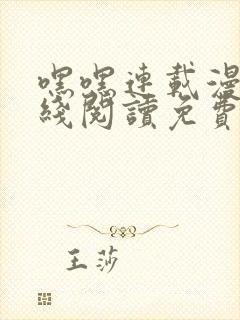 嘿嘿連載漫
綫閱讀免費
王莎